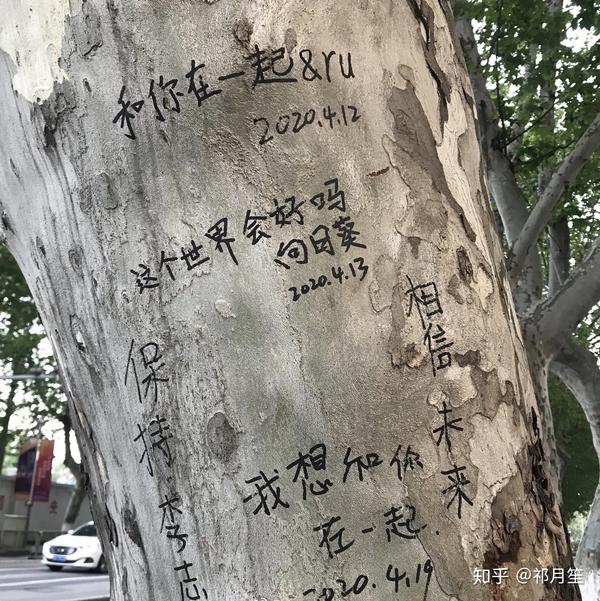 和你在一起&ru
2020.4.12
这个世界会好吗
向日葵
2020.4.13
相信未来
保持李志
我想和你
在一起.
2020.4.19
知乎 @祁月笙